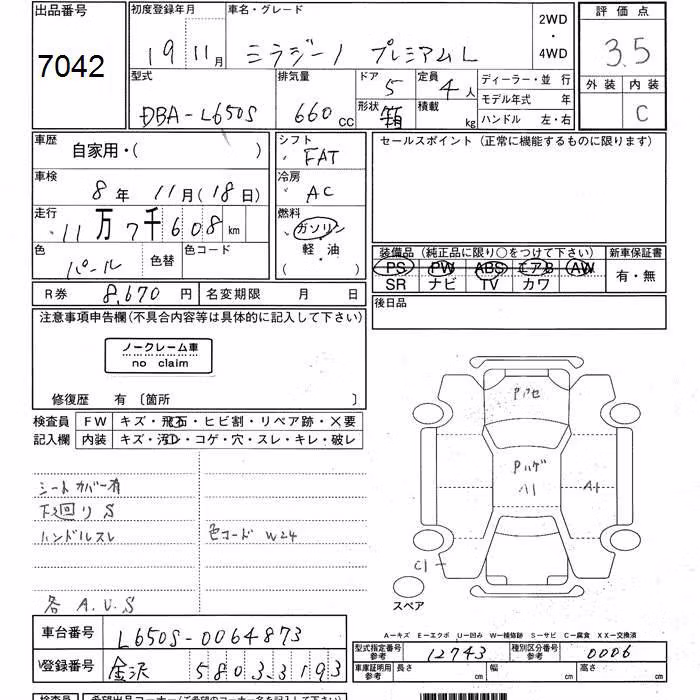 出品番号 初度登録年月 車名・グレード 2WD ・ 4WD 評価点
7042 19 11月 ミラジーノ プレミアムL 3.5
型式 排気量 ドア 5 定員 4人 ディーラー・並 行 外装 内装
DBA-L650S 660 CC 形状 箱 積載 kg モデル年式 年 C
ハンドル 左・右
車歴 自家用・( ) シフト FAT セールスポイント (正常に機能するものに限ります)
車検 8年 11月(18日) 冷房 AC
走行 11万7千608km 燃料 ガソリン 軽・油 ( )
色 パール 色替 色コード
装備品 (純正品に限り○をつけて下さい) 新車保証書
PS PW ABS エアB AW 有・無
SR ナビ TV カワ
R券 8,670円 名変期限 月 日 後日品
注意事項申告欄(不具合内容等は具体的に記入して下さい)
ノークレーム車
no claim
修復歴 有 〔箇所 〕
検査員 FW キズ・飛石・ヒビ割・リペア跡・X要
記入欄 内装 キズ・汚・コゲ・穴・スレ・キレ・破レ
シートカバー有
下回りS
ハンドルスレ 色コード W24
各 A.U.S
Pアセ
Pハゲ
A1
C1
スペア
A−キズ E−エクボ U−凹み W−補修跡 S−サビ C−腐食 XX−交換済
車台番号 L650S-0064873
登録番号 金沢 580 ろ 3193
型式指定番号 参考 12743 種別区分番号 参考 0006
車庫証明用 参考 長さ cm 幅 cm 高さ cm
検査員 希望出品コーナー(ご希望のコーナー名を記入して下さい)